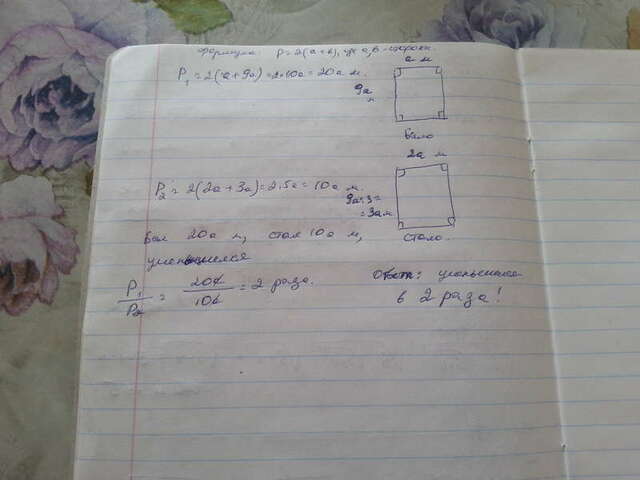 Формула: P = 2(a + b), где a, b - стороны.
a м
P₁ = 2(a + 9a) = 2·10a = 20a м.
9a
м
было
2a м
P₂ = 2(2a + 3a) = 2·5a = 10a м.
9a:3=
=3a м
стало.
Был 20a м, стал 10a м,
уменьшился
P₁/P₂ = 20a/10a = 2 раза.
Ответ: уменьшился
в 2 раза!